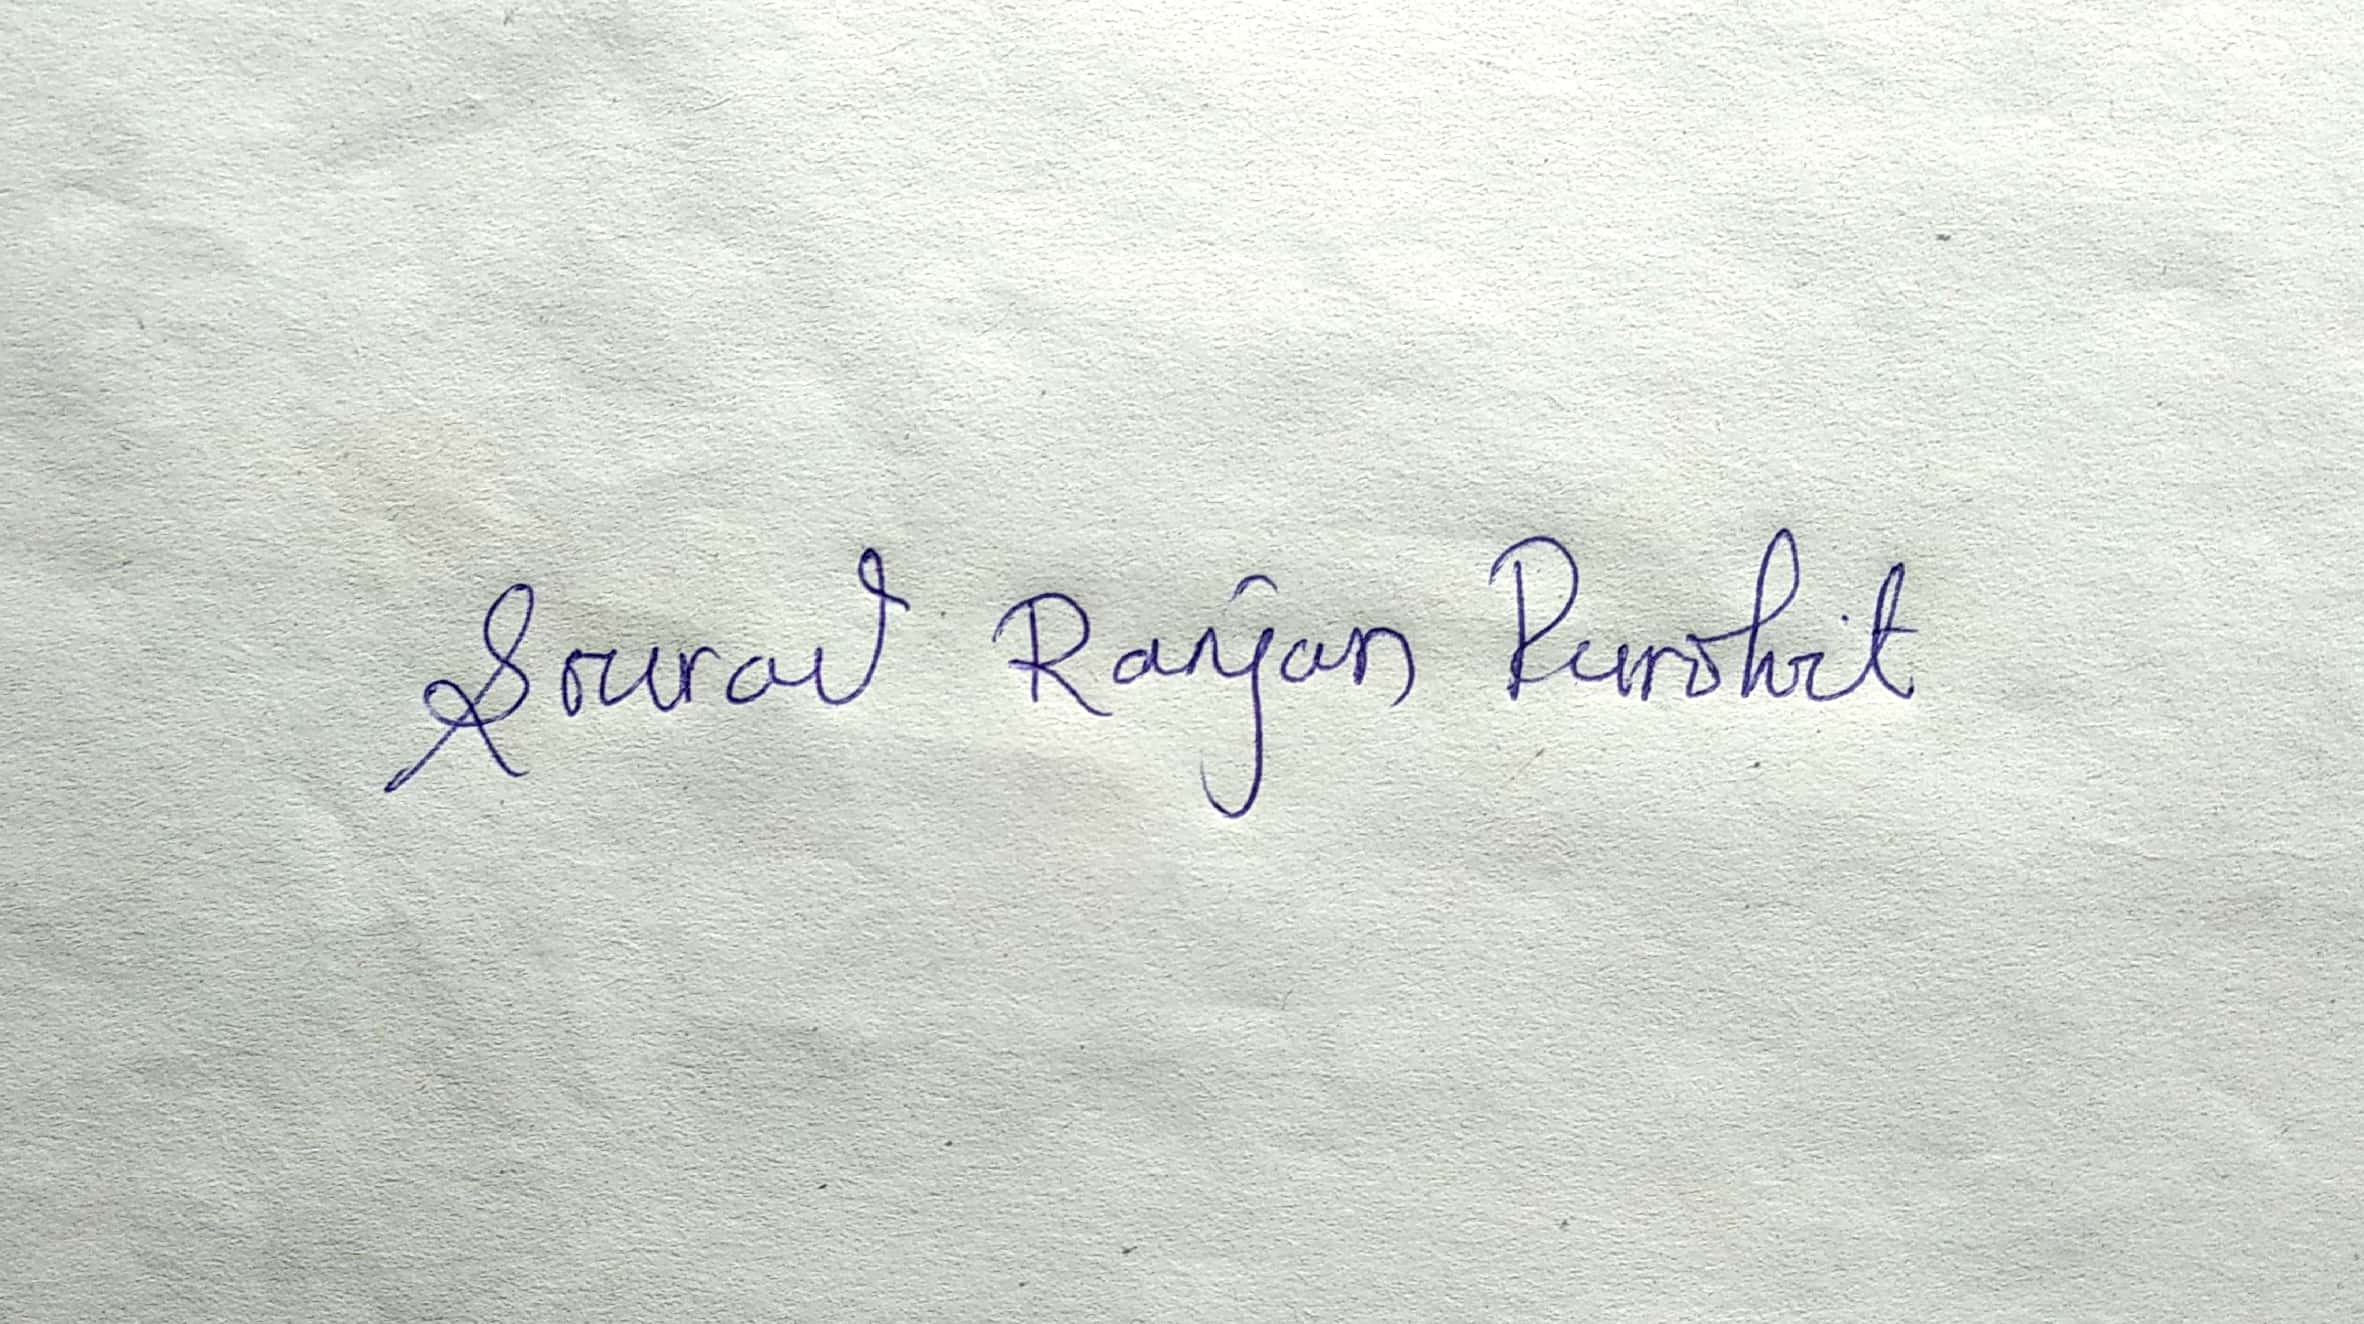 Sourav Ranjan Purohit